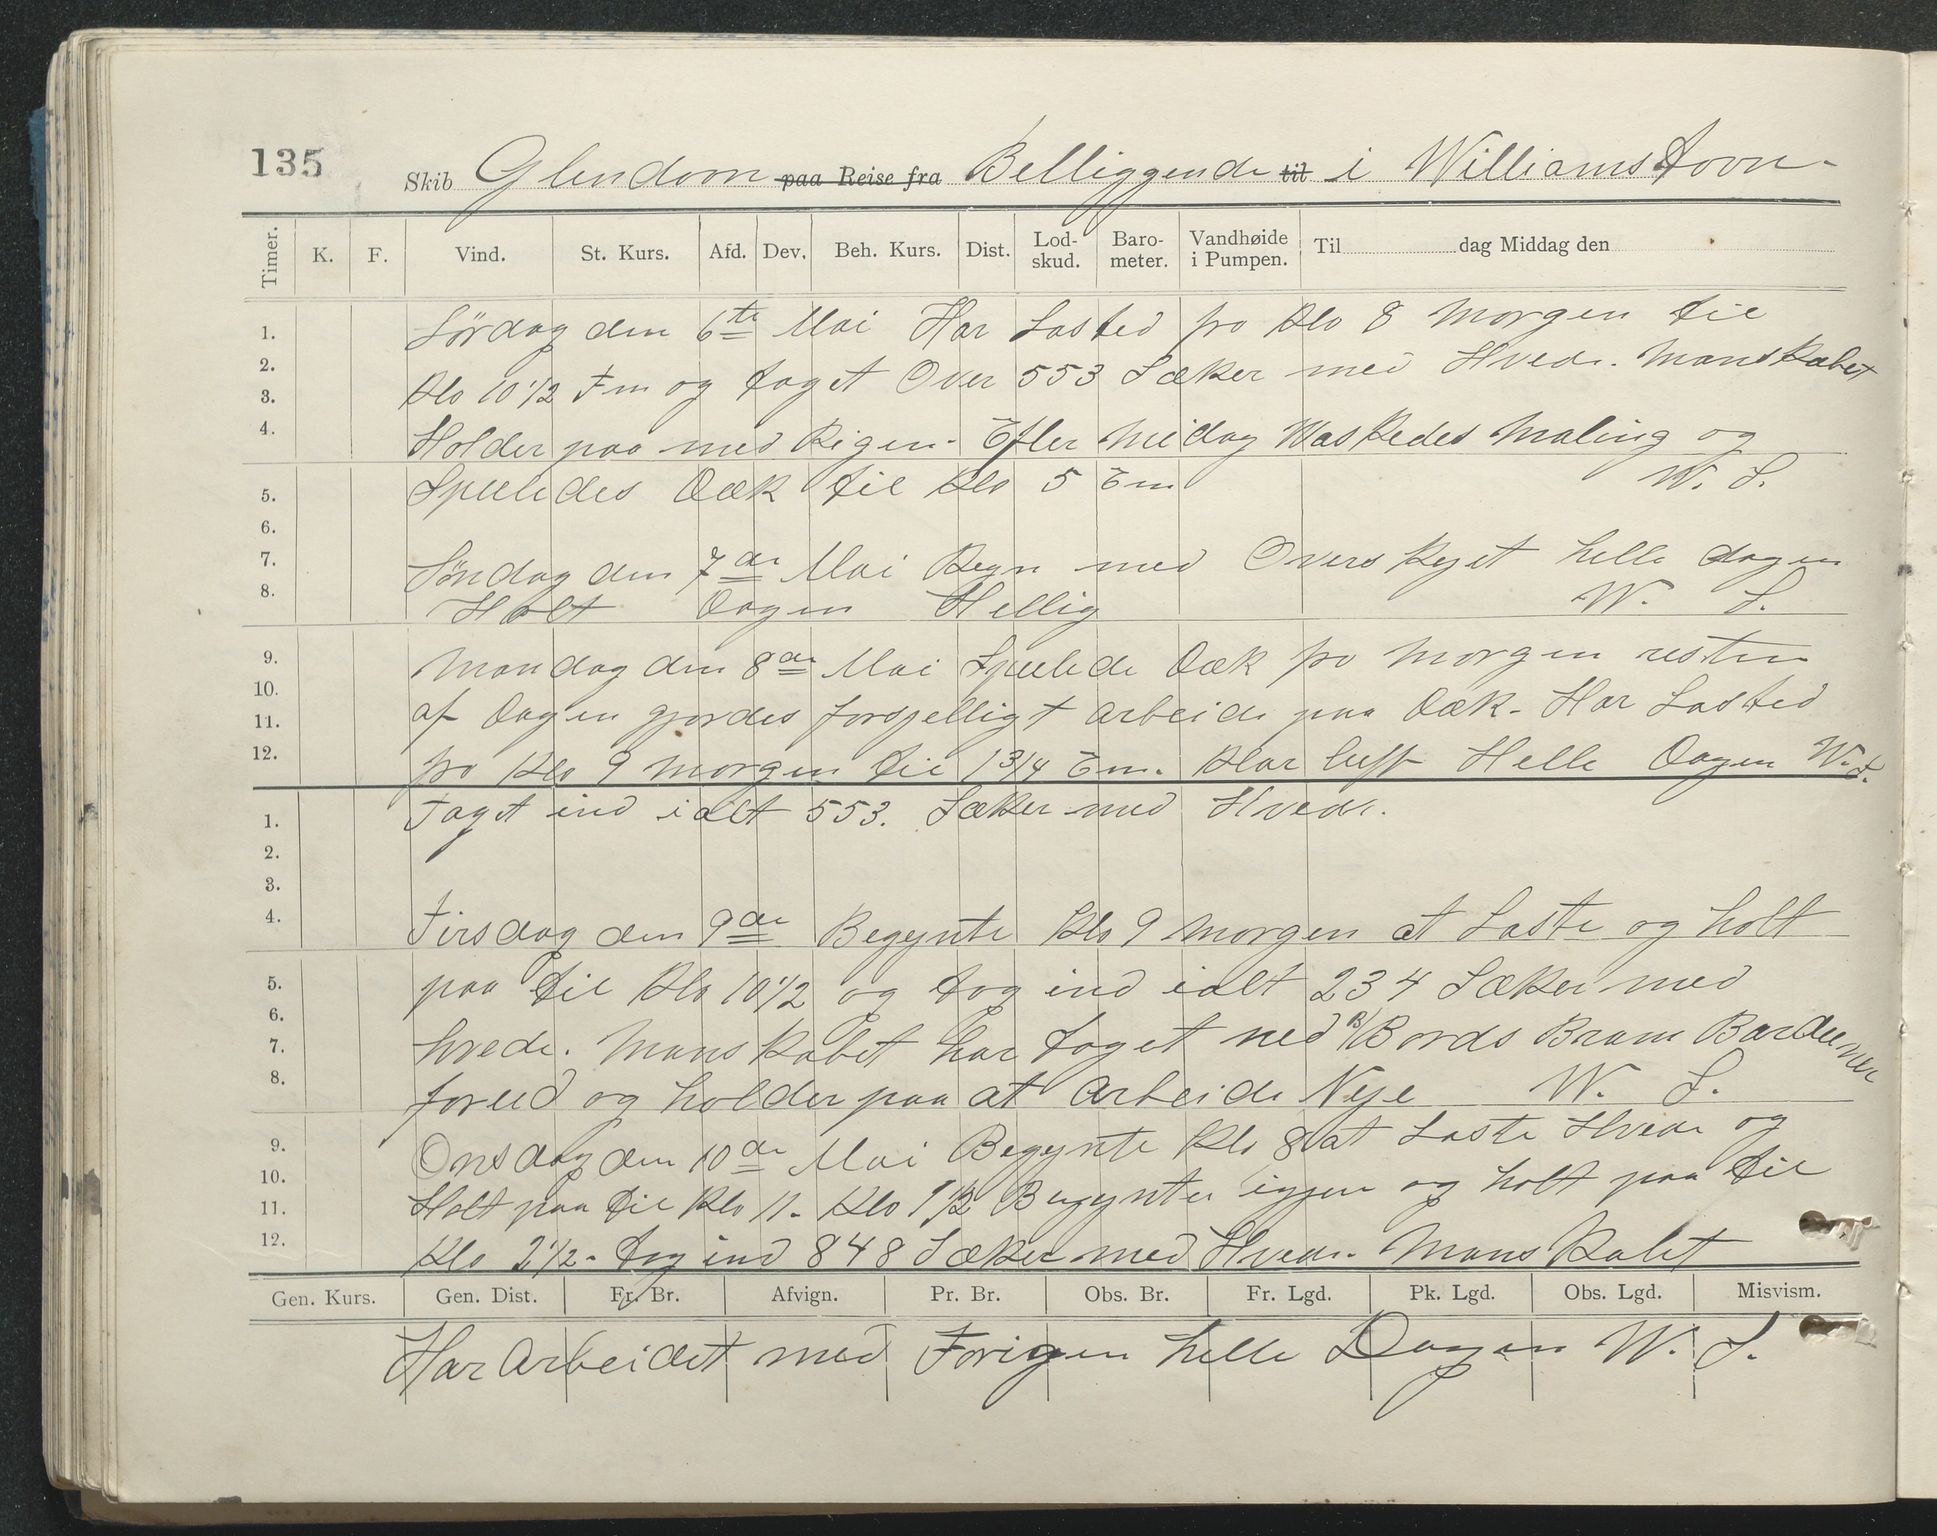 135 Skib Glendoon paa Reise fra Belliggende til i Williamstovn-
Timer. K. F. Vind. St. Kurs. Afd. Dev. Beh. Kurs. Dist. Lod-skud. Baro-meter. Vandhøide i Pumpen. Til dag Middag den
1. Lørdag den 6te Mai Har Lasted fra Klo 8 Morgen til
2. 3. Klo 10 1/2 Fm og taget Over 553 Sækker med Hvede. Manskabet
4. Holder paa med Rigen. Efter Midag Waskedes Maling og
5. Spuledes Dæk til Klo 5 Em W. S.
6.
7. Søndag den 7de Mai Regn med Overskyet helle dagen
8. Holt Dagen Hellig W. S.
9. Mandag den 8de Mai Spulede Dæk fra Morgen resten
10. 11. af Dagen gjordes forsjelligt arbeide paa Dæk. Har Lasted
12. fra Klo 9 Morgen til 1 3/4 Em. Klar luft Helle Dagen W. S.
1. Taget ind i alt 553. Sækker med Hvede.
2.
3.
4. Tirsdag den 9de Begynte Klo 9 Morgen at Laste og holt
5. paa til Klo 10 1/2 og tog ind ialt 234 Sækker med
6. 7. hvede. Manskabet har taget ned B/Bords Bram Barduner
8. forud og holder paa at arbeide Nye W. S.
9. Onsdag den 10de Mai Begynte Klo 8 at Laste Hvede og
10. 11. Holt paa til Klo 11. Klo 1 1/2 Begynte igjen og holt paa til
12. Klo 2 1/2. tog ind 848 Sækker med Hvede. Manskabet
Gen. Kurs. Gen. Dist. Fr. Br. Afvign. Pr. Br. Obs. Br. Fr. Lgd. Pk. Lgd. Obs. Lgd. Misvism.
Har arbeidet med Forigen helle Dagen W. S.